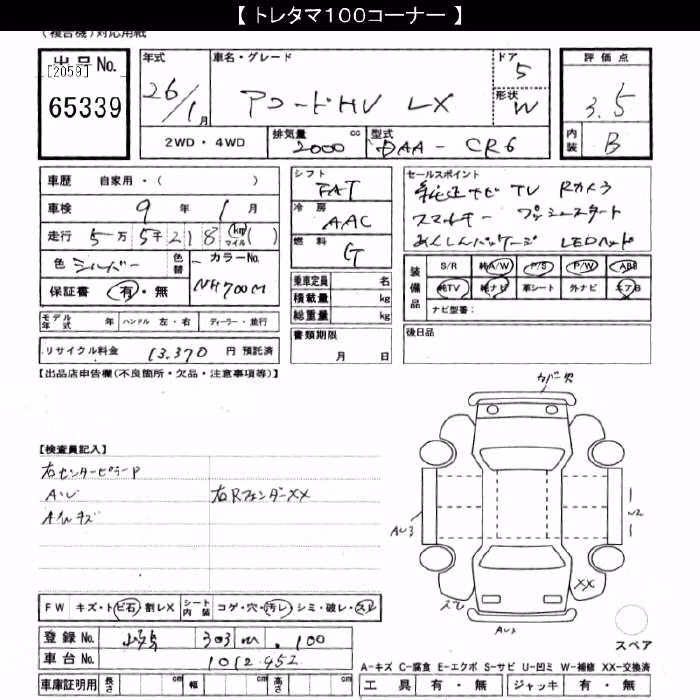 【 トレタマ100コーナー 】
(複合機)対応用紙
出品No. 年式 車名・グレード ドア 評価点
[2059] 26/1月 アコードHV LX 5 3.5
65339 形状 W
2WD・4WD 排気量 2000 cc 型式 DAA-CR6 内装 B
車歴 自家用・( ) シフト FAT セールスポイント
純正ナビ TV Rカメラ
車検 9 年 1 月 冷房 AAC スマートキー プッシュスタート
走行 5万5千218 (km マイル) ( ) 燃料 G あんしんパッケージ LEDヘッド
色 シルバー 色替 カラーNo. NH700M 乗車定員 名
装備品 S/R 純A/W P/S P/W ABS
保証書 有・無 積載量 kg 純TV 純ナビ 革シート 外ナビ エアB
総重量 kg ナビ型番:
モデル年式 年 ハンドル 左・右 ディーラー・並行 書類期限 月 日 後日品
リサイクル料金 13,370 円 預託済
【出品店申告欄(不良箇所・欠品・注意事項等)】
カバー欠
【検査員記入】
右センターピラーP
AU 右Rフェンダーxx
A/Wキズ
AU3
U2
XX
AU1
FW キズ・トビ石 割レX シート内装 コゲ・穴・汚レ・シミ・破レ・スレ
登録No. 303 100
スペア
車台No. 1012952
A-キズ C-腐食 E-エクボ S-サビ U-凹ミ W-補修 XX-交換済
車庫証明用 長さ cm 幅 cm 高さ cm 工具 有・無 ジャッキ 有・無